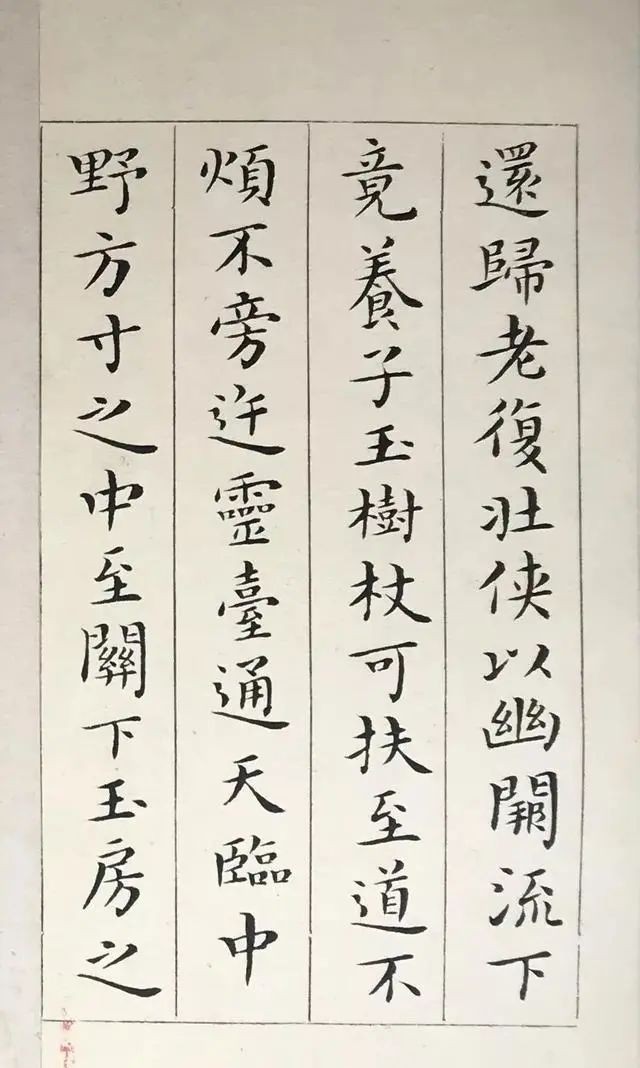 還歸老復壯侠以幽闕流下
竟養子玉樹杖可扶至道不
煩不旁迕靈臺通天臨中
野方寸之中至關下玉房之